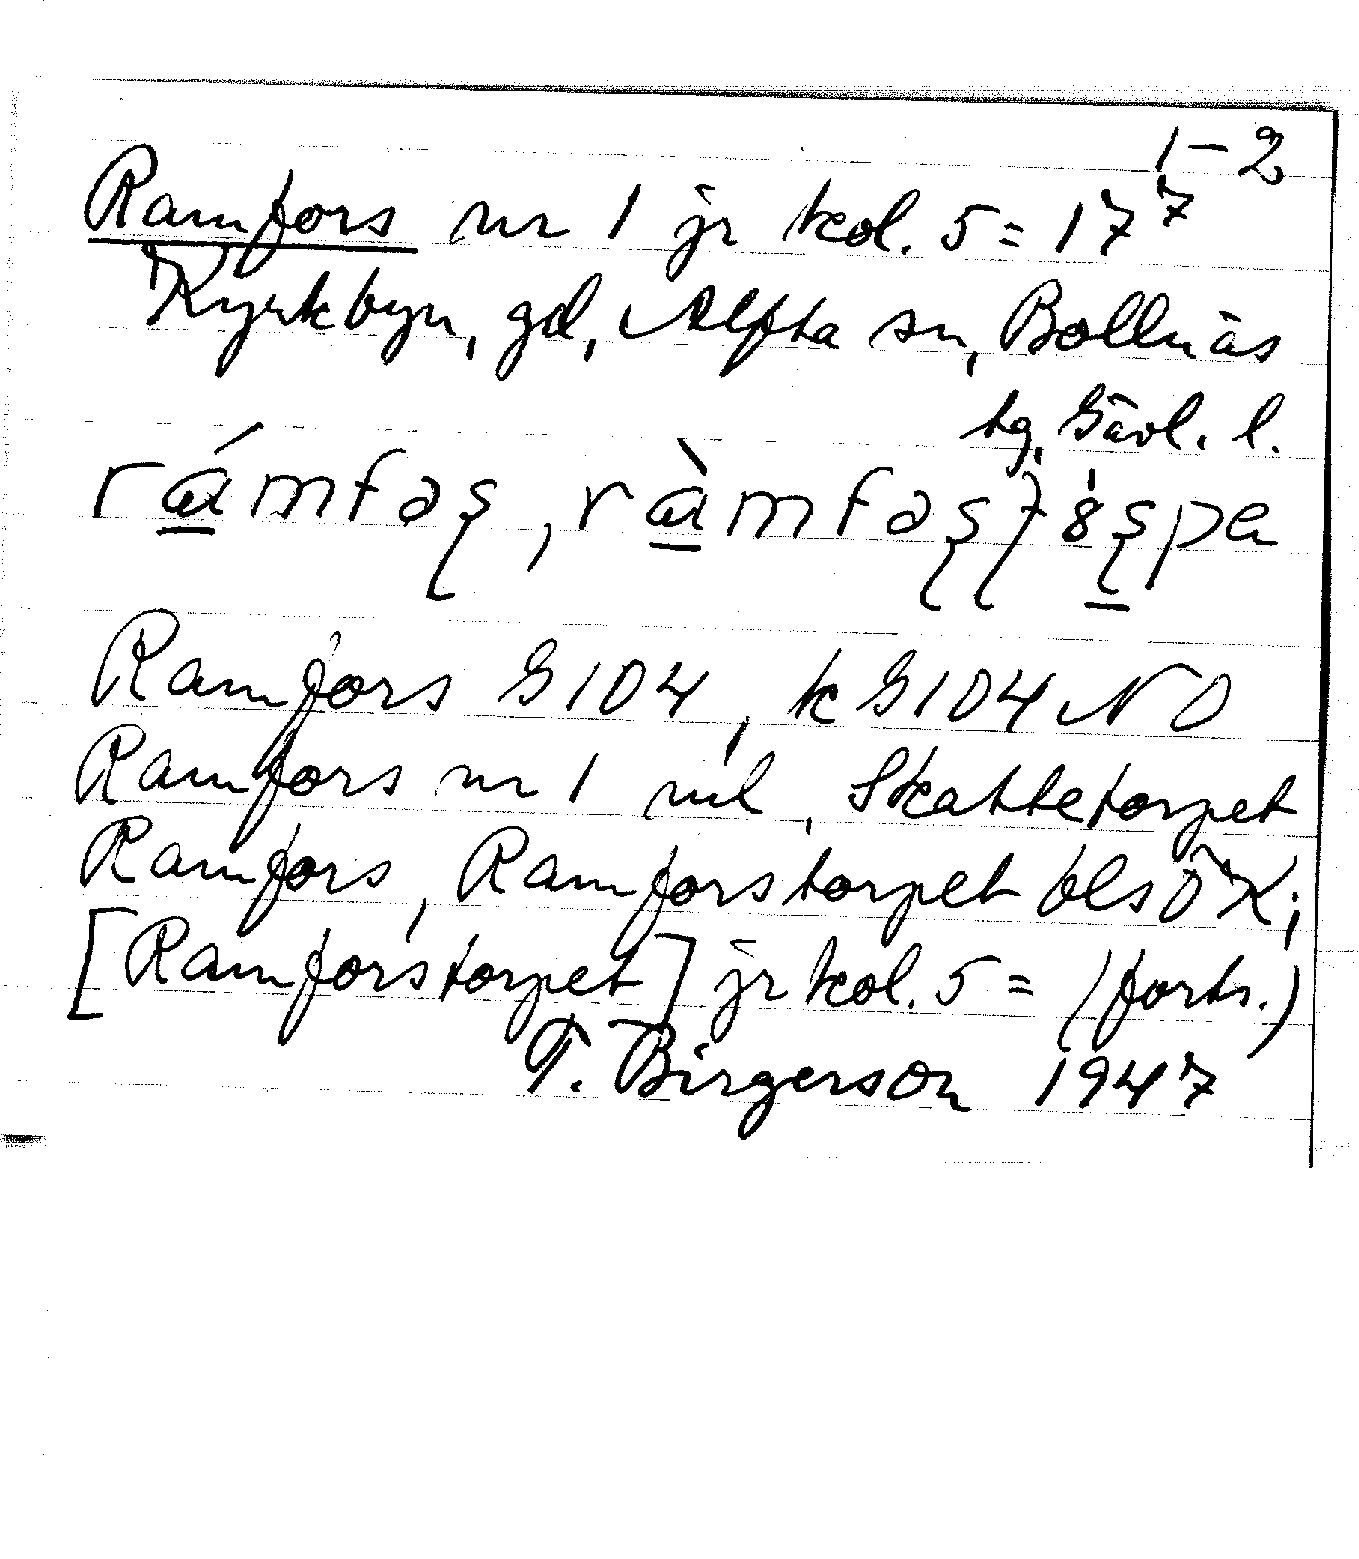 1-2
Ramfors nr 1 jr kol. 5 = 17⁷
Kyrkbyn, gd, Alfta sn, Bollnäs
tg, Gävl. l.
rámfəș, ràmfəș
Ramfors G104, k G104 NO
Ramfors nr 1 ml, Skattetorpet
Ramfors, Ramforstorpet bls ÖK;
[Ramforstorpet] jr kol. 5 = (forts.)
T. Birgerson 1947